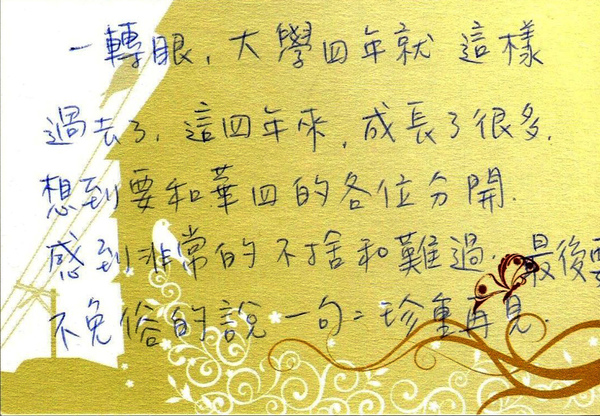 一轉眼,大學四年就 這樣
過去了,這四年來,成長了很多,
想到要和華四的各位分開.
感到非常的不捨和難過,最後要
不免俗的說一句:珍重再見.